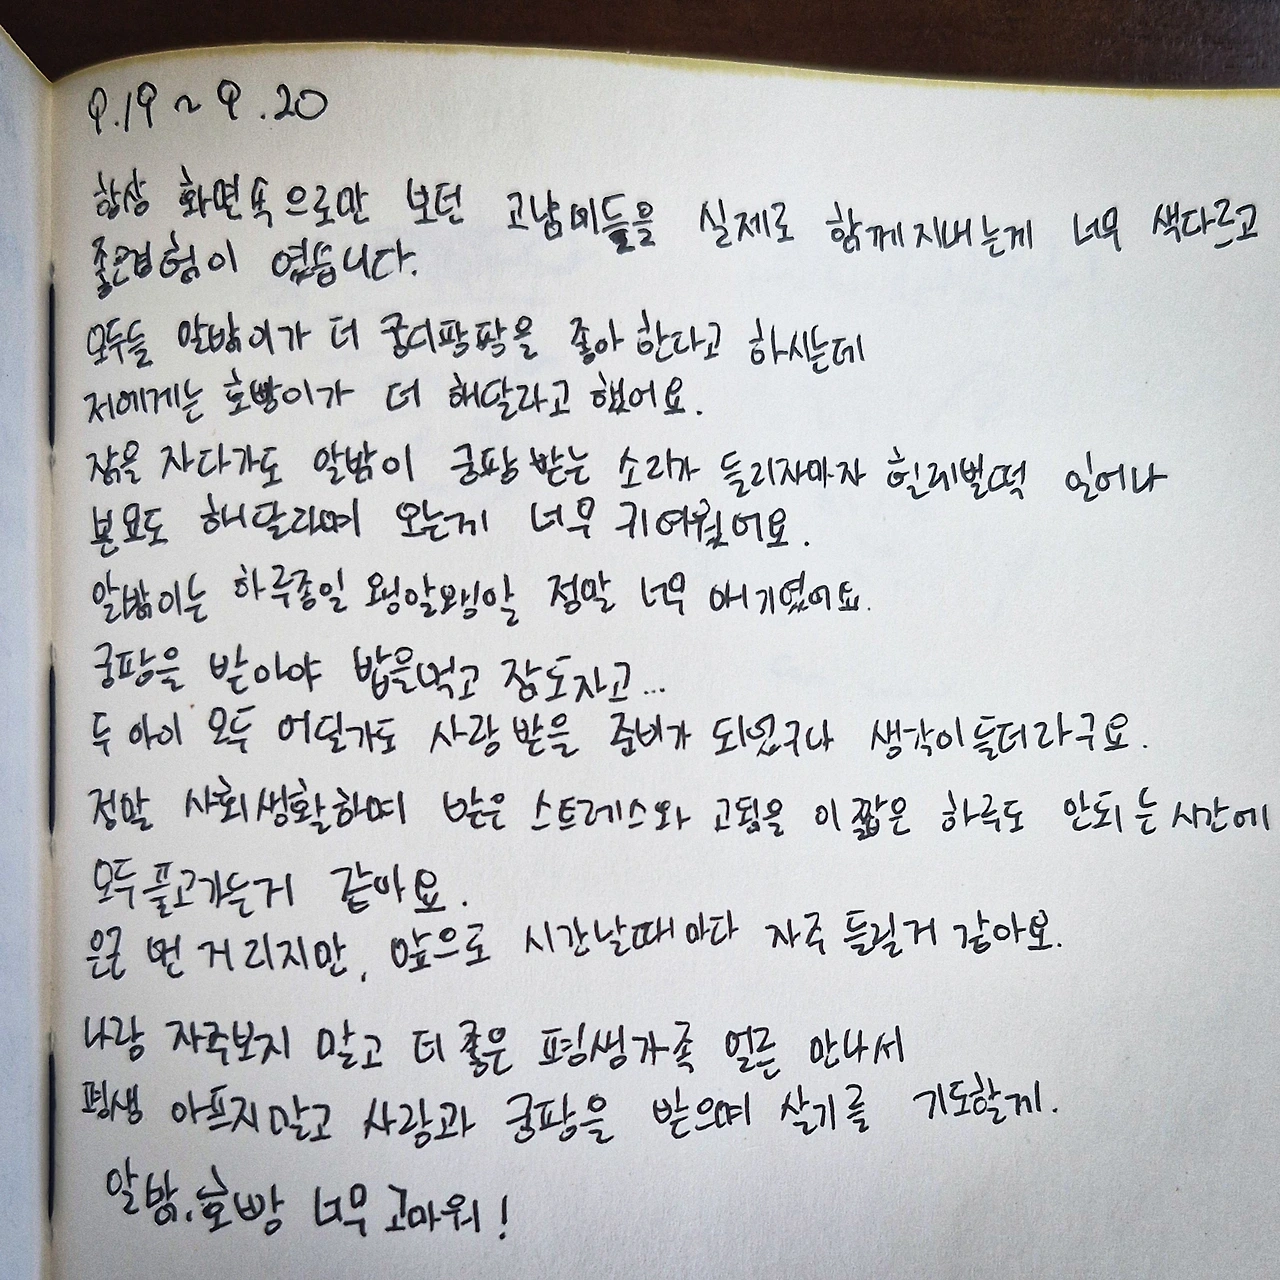 9.19 ~ 9.20
항상 화면속으로만 보던 고냠미들을 실제로 함께지내는게 너무 색다르고
좋은경험이 였습니다.
모두들 알밤이가 더 궁디팡팡을 좋아 한다고 하시는데
저에게는 호빵이가 더 해달라고 했어요.
잠을 자다가도 알밤이 궁팡 받는 소리가 들리자마자 헐레벌떡 일어나
본묘도 해달라며 오는게 너무 귀여웠어요.
알밤이는 하루종일 왱알왱알 정말 너무 애기였어요.
궁팡을 받아야 밥을먹고 잠도자고...
두 아이 모두 어딜가도 사랑 받을 준비가 되었구나 생각이들더라구요.
정말 사회생활하며 받은 스트레스와 고됨을 이 짧은 하루도 안되는 시간에
모두 풀고가는거 같아요.
은근 먼 거리지만, 앞으로 시간날때마다 자주 들릴거 같아요.
나랑 자주보지 말고 더 좋은 평생가족 얼른 만나서
평생 아프지말고 사랑과 궁팡을 받으며 살기를 기도할게.
알밤,호빵 너무 고마워!